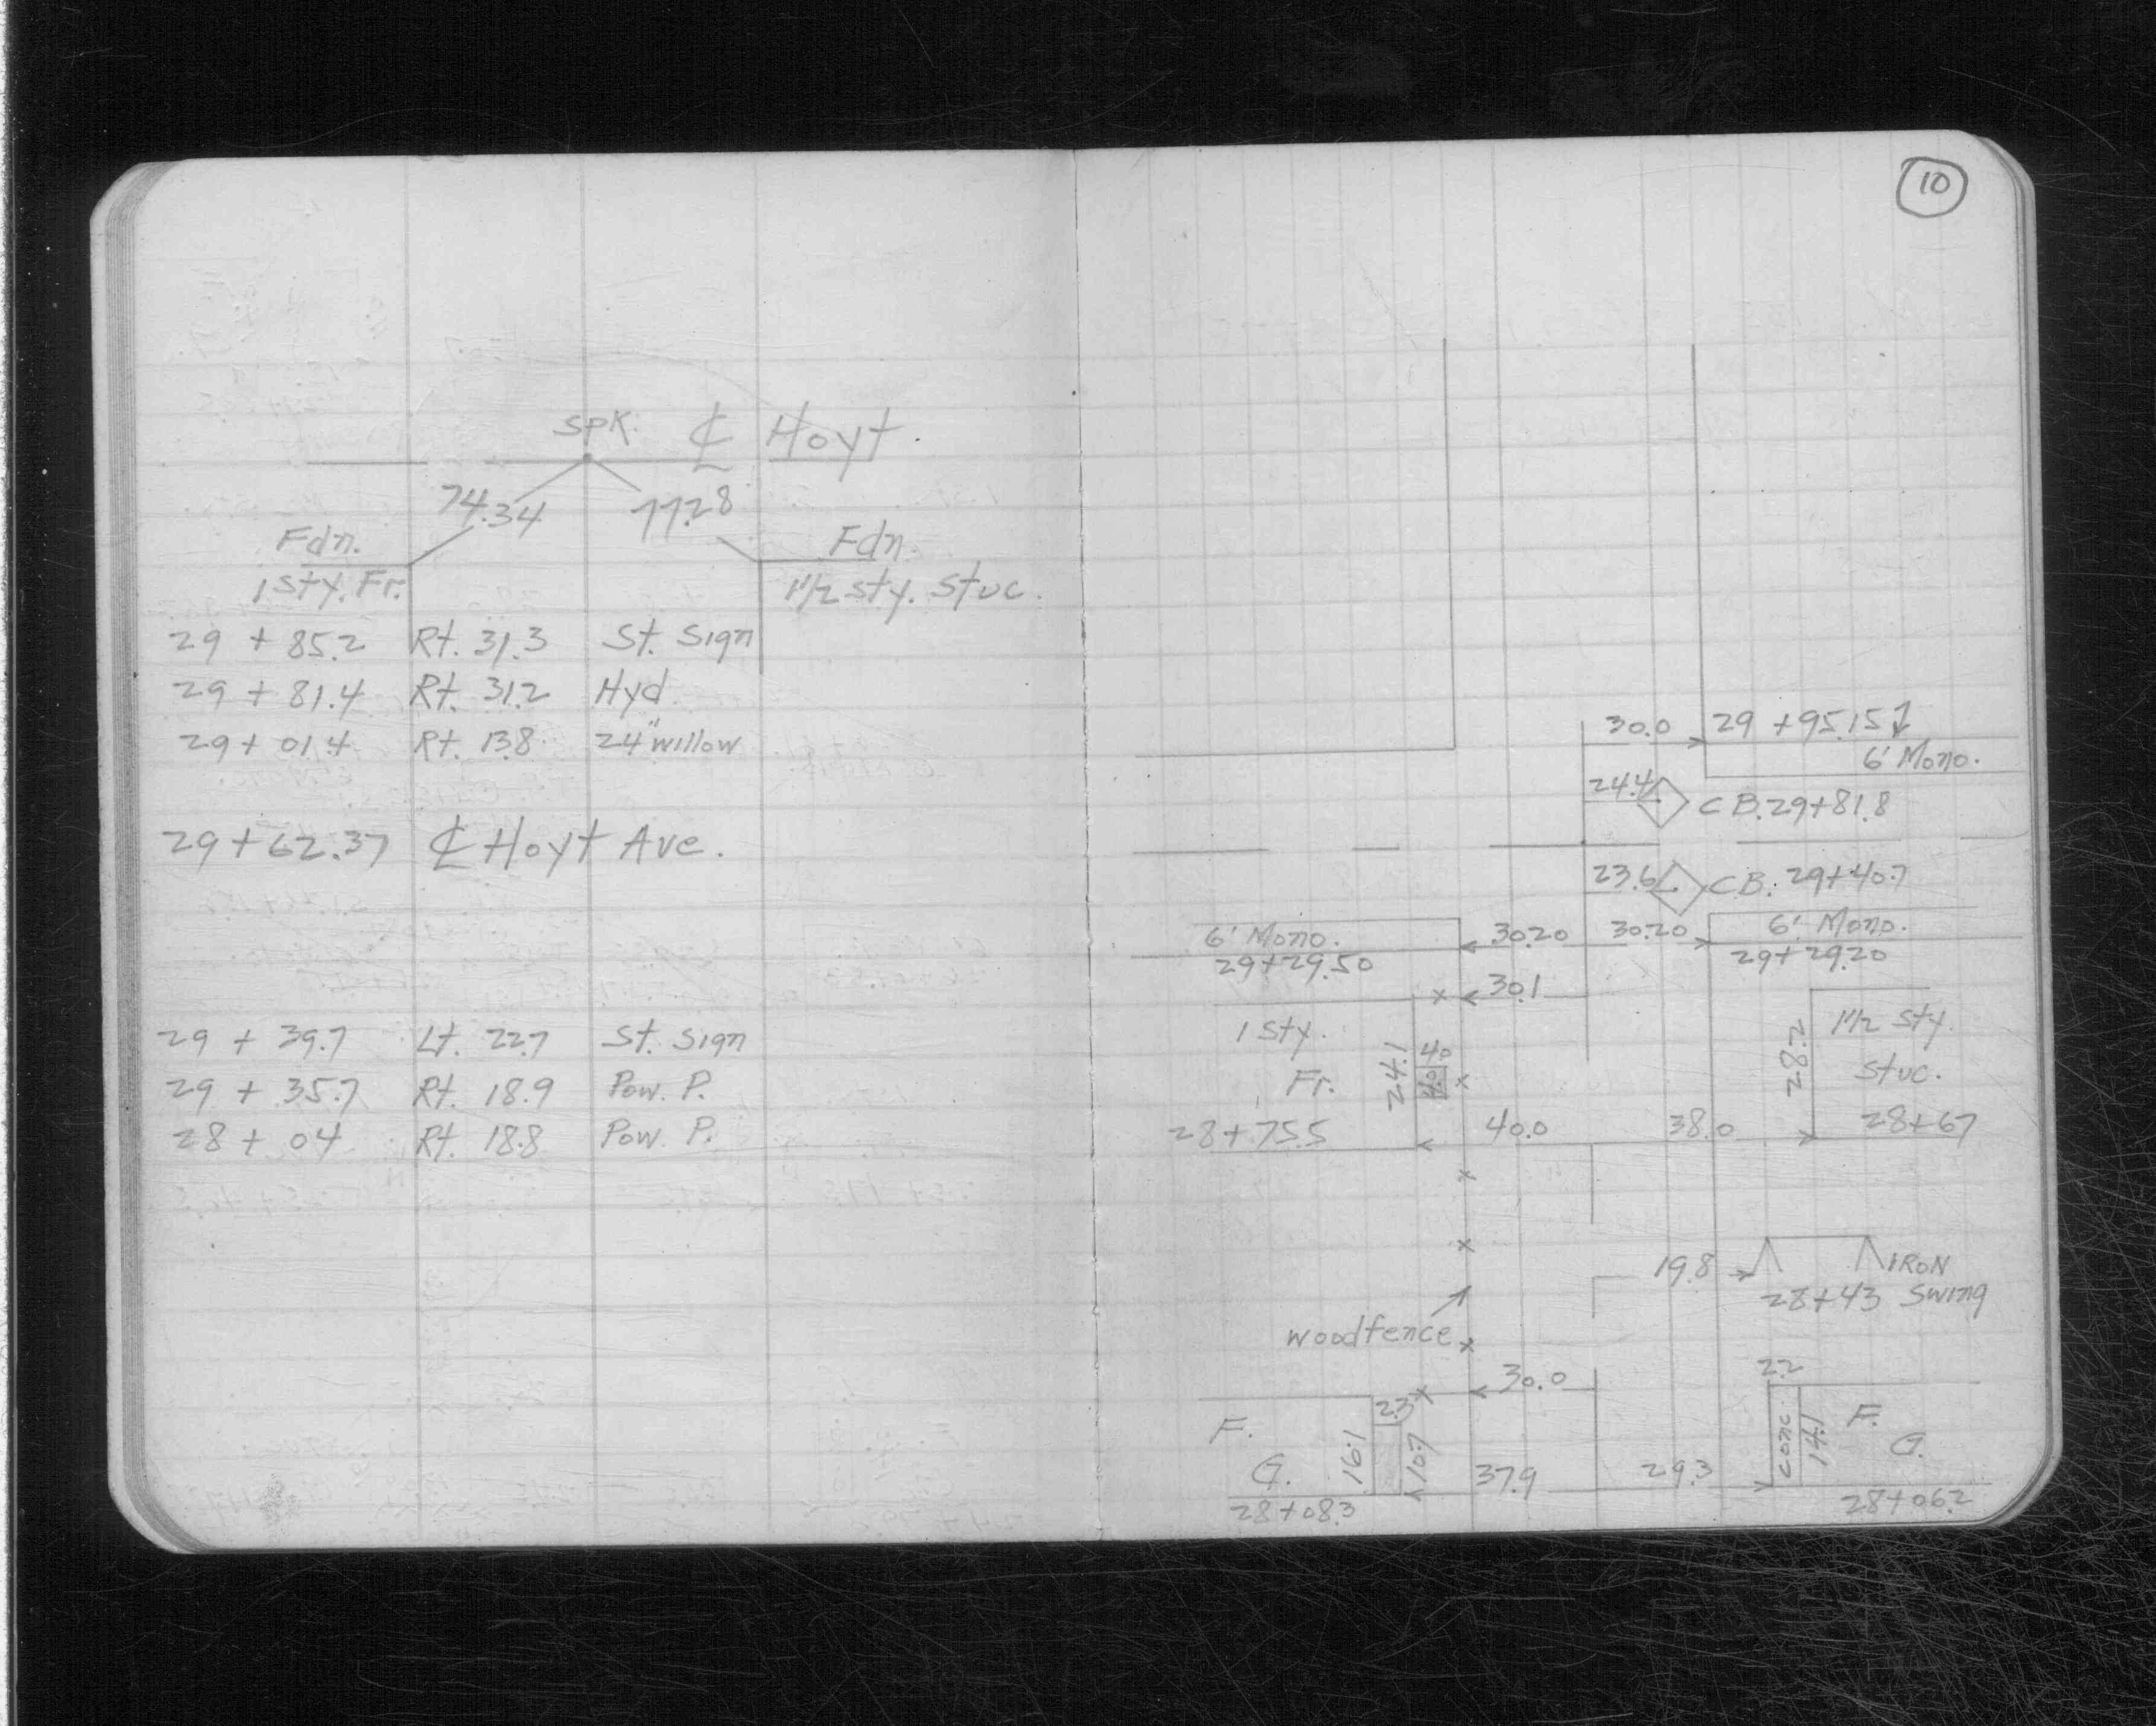 10
SPK. ℄ Hoyt.
74.34 77.28
Fdn. Fdn.
1 Sty. Fr. 1 1/2 sty. Stuc.
29 + 85.2 Rt. 31.3 St. Sign
29 + 81.4 Rt. 31.2 Hyd
29 + 01.4 Rt. 13.8 24" willow
29 + 62.37 ℄ Hoyt Ave.
29 + 39.7 Lt. 22.7 St. Sign
29 + 35.7 Rt. 18.9 Pow. P.
28 + 04 Rt. 18.8 Pow. P.
30.0 29 + 95.15
6' Mono.
24.4 C B. 29+81.8
23.6 C B. 29+40.7
6' Mono. 30.20 30.20 6' Mono.
29+29.50 29+29.20
30.1
1 Sty. 1 1/2 Sty.
24.1 4.0 28.2
Fr. 4.0 Stuc.
28+75.5 40.0 38.0 28+67
19.8 IRON
28+43 Swing
wood fence
30.0 2.2
F. 2.3 F.
G. 16.1 10.7 conc. 14.1 G.
37.9 29.3
28+08.3 28+06.2